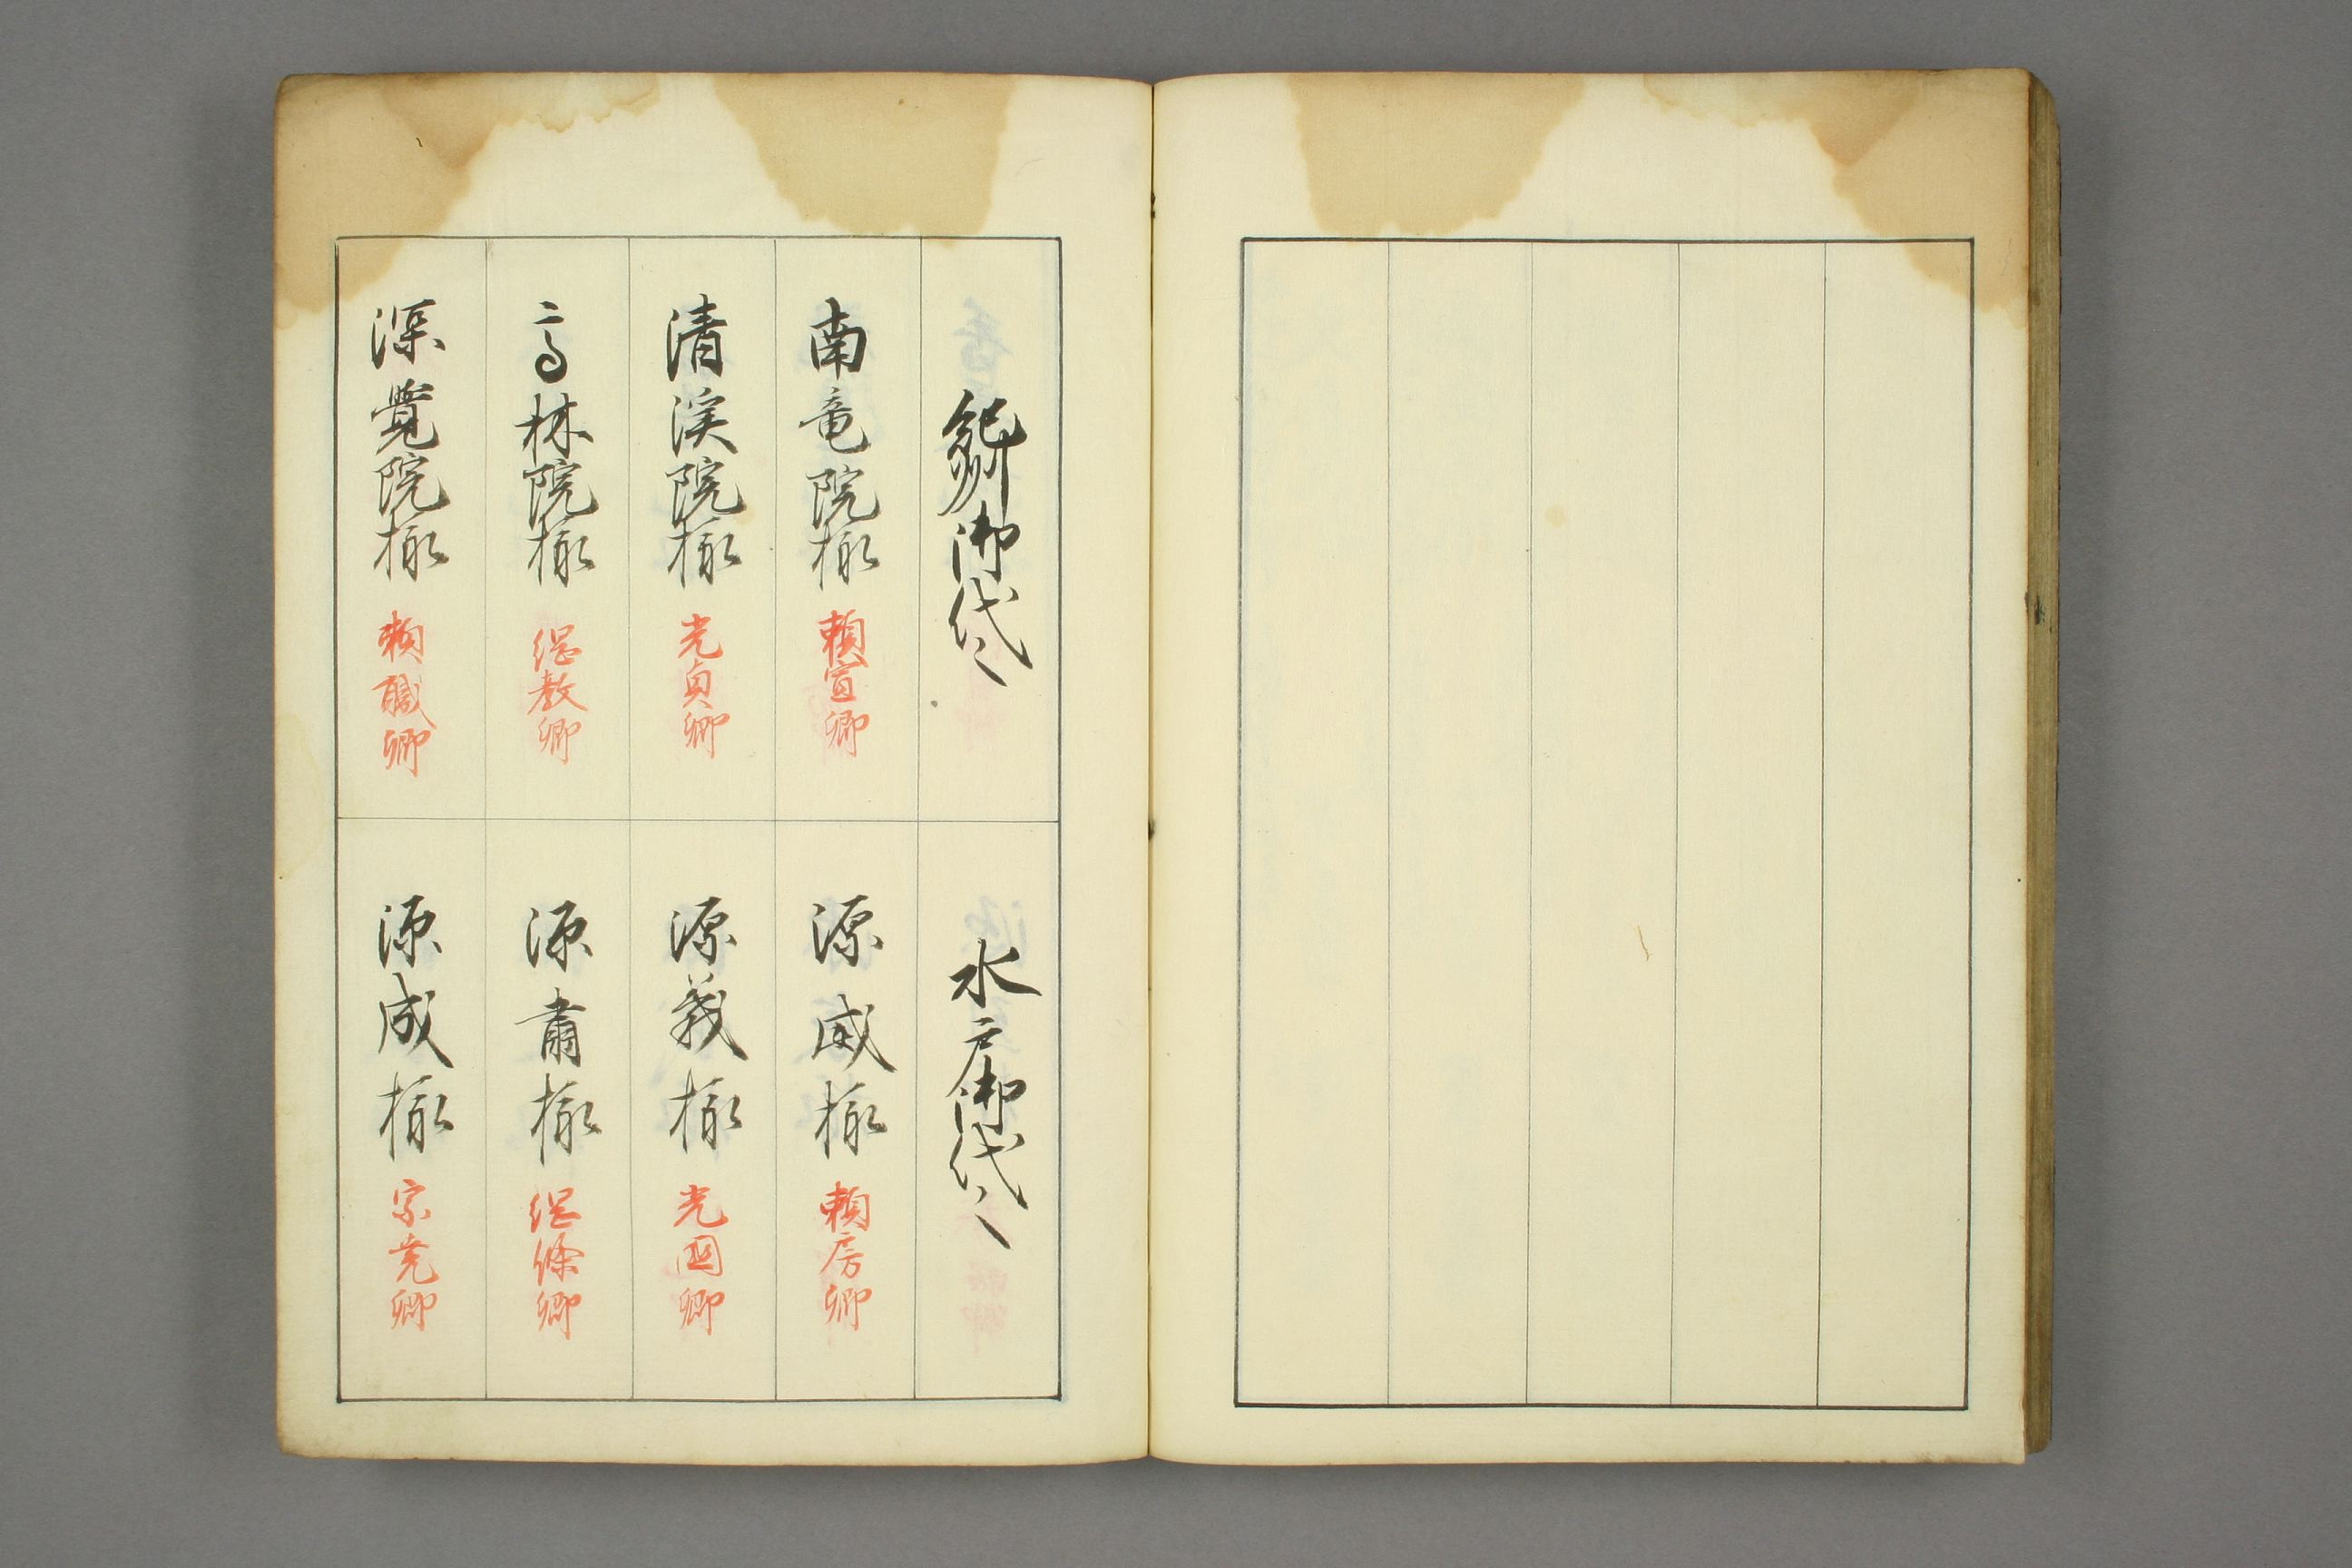 紀州御代々
南竜院様 頼宣卿
清渓院様 光貞卿
高林院様 綱教卿
深覚院様 頼職卿
水戸御代々
源威様 頼房卿
源義様 光圀卿
源肅様 綱條卿
源成様 宗堯卿